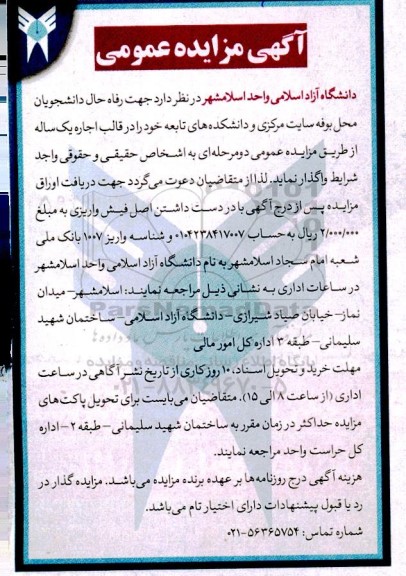 آگهی مزایده عمومی
دانشگاه آزاد اسلامی واحد اسلامشهر در نظر دارد جهت رفاه حال دانشجویان
محل بوفه سایت مرکزی و دانشکده‌های تابعه خود را در قالب اجاره یک ساله
از طریق مزایده عمومی دو مرحله‌ای به اشخاص حقیقی و حقوقی واجد
شرایط واگذار نماید. لذا از متقاضیان دعوت می‌گردد جهت دریافت اوراق
مزایده پس از درج آگهی با در دست داشتن اصل فیش واریزی به مبلغ
۲/۰۰۰/۰۰۰ ریال به حساب ۰۱۰۴۲۳۸۴۱۷۰۰۷ و شناسه واریز ۱۰۰۷ بانک ملی
شعبه امام سجاد اسلامشهر به نام دانشگاه آزاد اسلامی واحد اسلامشهر
در ساعات اداری به نشانی ذیل مراجعه نمایند: اسلامشهر- میدان
نماز- خیابان صیاد شیرازی- دانشگاه آزاد اسلامی- ساختمان شهید
سلیمانی- طبقه ۳ اداره کل امور مالی
مهلت خرید و تحویل اسناد، ۱۰ روز کاری از تاریخ نشر آگاهی در ساعت
اداری (از ساعت ۸ الی ۱۵). متقاضیان می‌بایست برای تحویل پاکت‌های
مزایده حداکثر در زمان مقرر به ساختمان شهید سلیمانی- طبقه ۲- اداره
کل حراست واحد مراجعه نمایند.
هزینه آگهی درج روزنامه‌ها بر عهده برنده مزایده می‌باشد. مزایده گذار در
رد یا قبول پیشنهادات دارای اختیار تام می‌باشد.
شماره تماس: ۵۶۳۶۵۷۵۴-۰۲۱